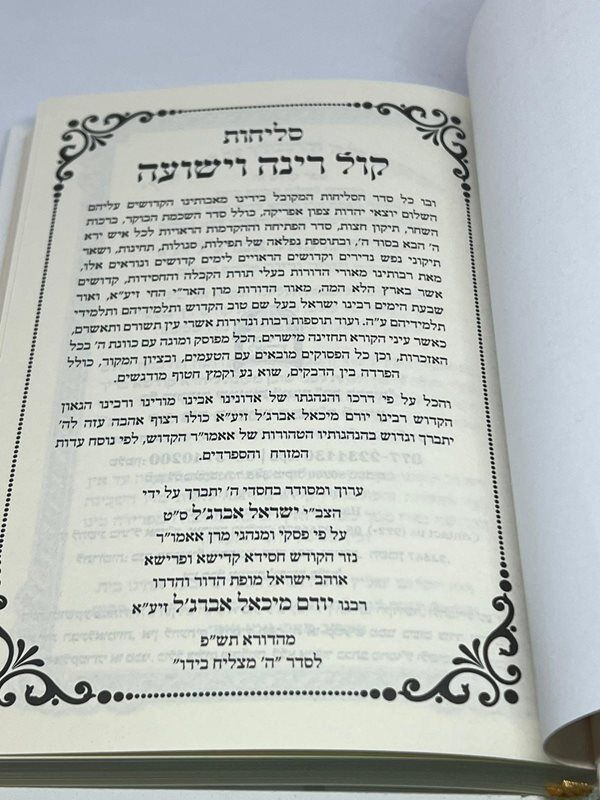 סליחות
קול רינה וישועה
ובו כל סדר הסליחות המקובל בידינו מאבותינו הקדושים עליהם
השלום יוצאי יהדות צפון אפריקה, כולל סדר השכמת הבוקר, ברכות
השחר, תיקון חצות, סדר הפתיחה וההקדמות הראויות לכל איש ירא
ה' הבא בסוד ה', ובתוספת נפלאה של תפילות, סגולות, תחינות, ושאר
תיקוני נפש נדירים וקדושים הראויים לימים קדושים ונוראים אלו,
מאת רבותינו מאורי הדורות בעלי תורת הקבלה והחסידות, קדושים
אשר בארץ הלא המה, מאור הדורות מרן האר"י החי זיע"א, ואור
שבעת הימים רבינו ישראל בעל שם טוב הקדוש ותלמידיהם ותלמידי
תלמידיהם ע"ה. ועוד תוספות רבות ונדירות אשרי עין תשורם ותאשרם,
כאשר עיני הקורא תחזינה מישרים. הכל מפוסק ומוגה עם כוונת ה' בכל
האזכרות, וכן כל הפסוקים מובאים עם הטעמים, ובציון המקור, כולל
הפרדה בין הדבקים, שוא נע וקמץ חטוף מודגשים.
והכל על פי דרכו והנהגתו של אדונינו אבינו מורינו ורבינו הגאון
הקדוש רבינו יורם מיכאל אברג'ל זיע"א כולו רצוף אהבה עזה לה'
יתברך וגדוש בהנהגותיו הטהורות של אאמו"ר הקדוש, לפי נוסח עדות
המזרח והספרדים.
ערוך ומסודר בחסדי ה' יתברך על ידי
הצב"י ישראל אברג'ל ס"ט
על פי פסקי ומנהגי מרן אאמו"ר
נזר הקודש חסידא קדישא ופרישא
אוהב ישראל מופת הדור והדרו
רבנו יורם מיכאל אברג'ל זיע"א
מהדורא תש"פ
לסדר "ה' מצליח בידו"